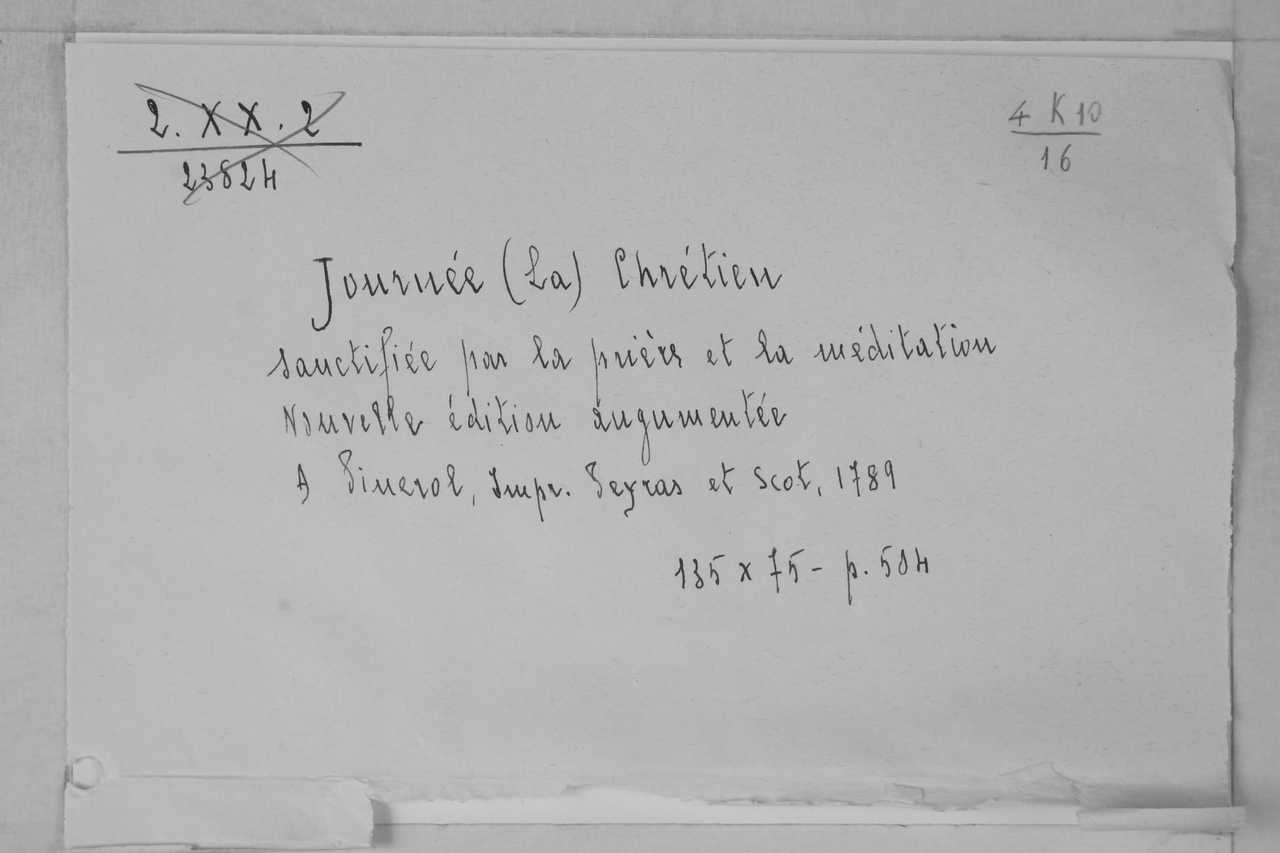 2. X X. 2
23824
4 K 10
16
Journée (La) Chrétien
sanctifiée par la prière et la méditation
Nouvelle édition augumentée
A Pinerol, Impr. Peyras et Scot, 1789
135 x 75 - p. 504